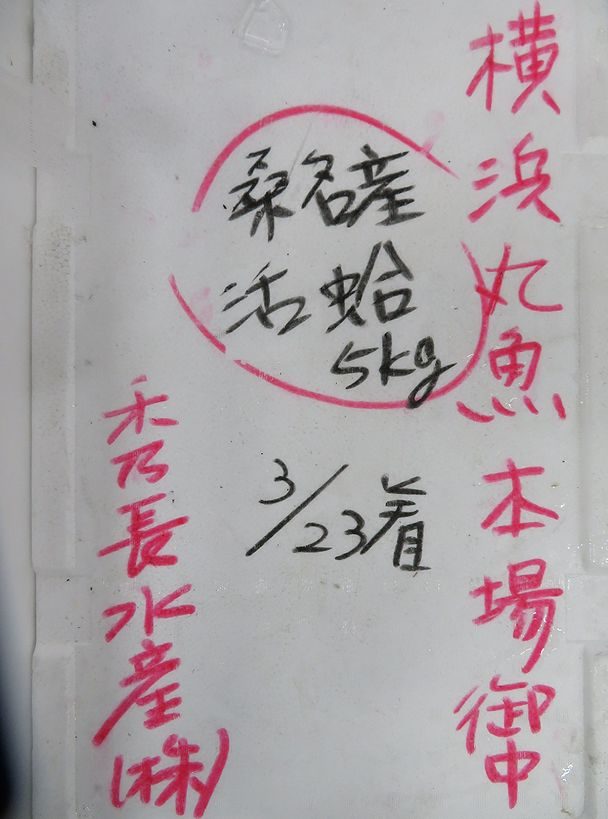 横浜丸魚本場御中
桑名産
活蛤
5kg
3/23着
秀長水産(株)